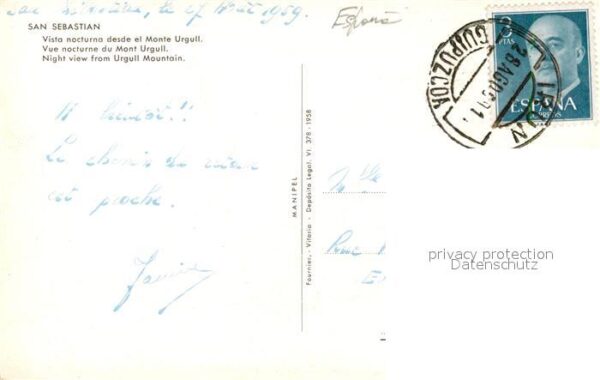 San Sebastian, le 27 Août 1959.
España
SAN SEBASTIAN
Vista nocturna desde el Monte Urgull.
Vue nocturne du Mont Urgull.
Night view from Urgull Mountain.
A bientôt!!
Le chemin du
est proche.
MANIPEL
Fournier, - Vitoria - Depósito Legal. VI. 378 - 1958
IRUN
GUIPUZCOA
28 AGO
PTAS
ESPAÑA
CORREOS
privacy protection
Datenschutz